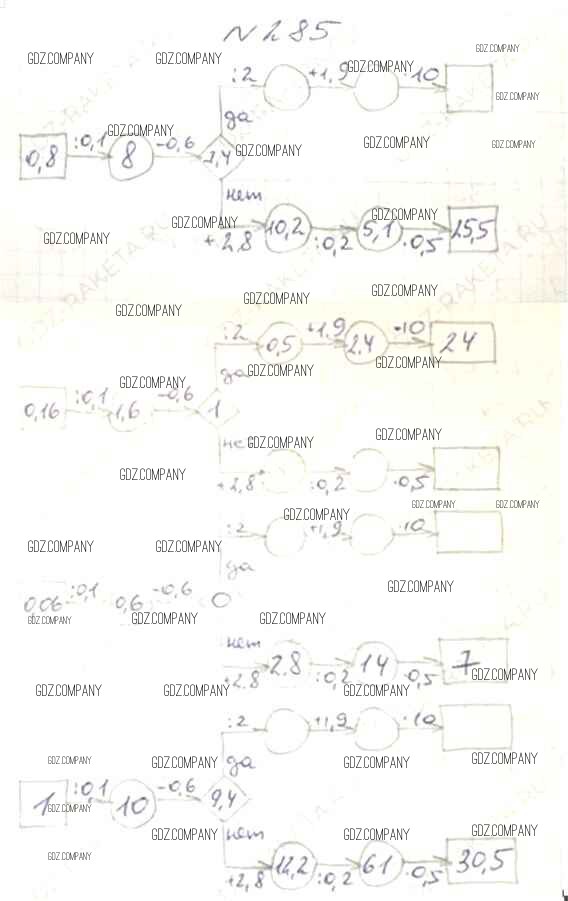 N 285
GDZ.COMPANY GDZ.COMPANY GDZ.COMPANY
:2 +1,9 GDZ.COMPANY ·10
GDZ.COMPANY
да
GDZ.COMPANY
0,8 :0,1 8 -0,6 7,4
GDZ.COMPANY GDZ.COMPANY GDZ.COMPANY
нет
GDZ.COMPANY GDZ.COMPANY
+2,8 10,2 :0,2 5,1 ·0,5 25,5
GDZ.COMPANY
GDZ.COMPANY GDZ.COMPANY GDZ.COMPANY
:2 0,5 +1,9 2,4 ·10 24
да
GDZ.COMPANY GDZ.COMPANY GDZ.COMPANY
0,16 :0,1 1,6 -0,6 1
GDZ.COMPANY
не
GDZ.COMPANY
+2,8 :0,2 ·0,5
GDZ.COMPANY GDZ.COMPANY GDZ.COMPANY
:2 +1,9 ·10
GDZ.COMPANY GDZ.COMPANY GDZ.COMPANY
да
GDZ.COMPANY
0,06 :0,1 0,6 -0,6 0
GDZ.COMPANY GDZ.COMPANY GDZ.COMPANY
нет
+2,8 2,8 :0,2 14 ·0,5 7
GDZ.COMPANY
GDZ.COMPANY GDZ.COMPANY GDZ.COMPANY
:2 +1,9 ·10
да
GDZ.COMPANY GDZ.COMPANY GDZ.COMPANY GDZ.COMPANY
1 :0,1 10 -0,6 9,4
GDZ.COMPANY
нет
GDZ.COMPANY GDZ.COMPANY GDZ.COMPANY
+2,8 12,2 :0,2 61 ·0,5 30,5
GDZ.COMPANY